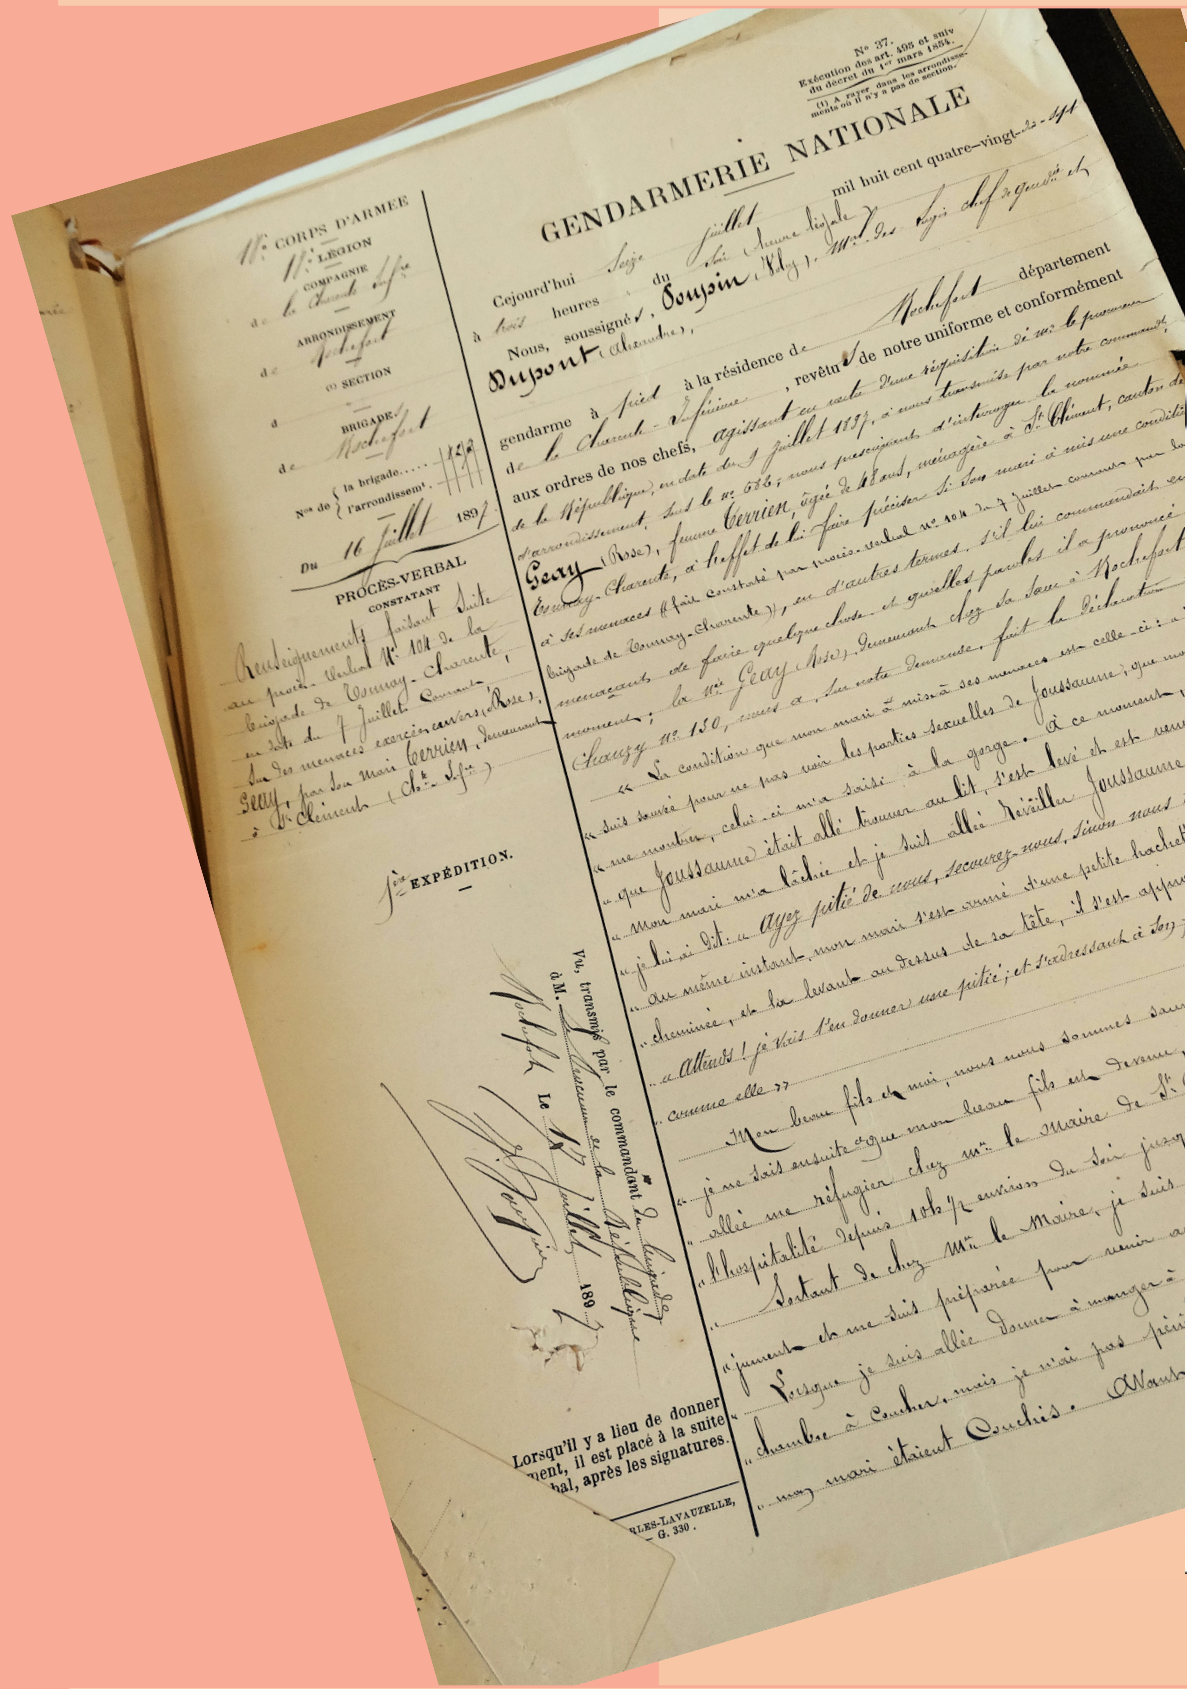 N° 37.
Exécution des art. 495 et suiv
du décret du 1er mars 1854.
(1) A rayer dans les arrondisse-
ments où il n'y a pas de section.
GENDARMERIE NATIONALE
18e CORPS D'ARMÉE
18e LÉGION
COMPAGNIE
de la Charente Infre
ARRONDISSEMENT
de Rochefort
(1) SECTION
d
BRIGADES
de Rochefort
Nos de { la brigade.....
l'arrondissemt.
Du 16 Juillet 1897.
PROCÈS-VERBAL
CONSTATANT
Renseignements faisant suite
au procès-verbal N° 104 de la
brigade de Tonnay-Charente,
en date du 7 Juillet Courant,
sur des menaces exercées envers (Rose),
Geay, par son mari Terrien, demeurant
à St Clément (Chte Infre)
1ère EXPÉDITION.
Vu, transmis par le commandant du brigade
à M. le Procureur de la République
Rochefort Le 17 Juillet 1897
Lorsqu'il y a lieu de donner
ment, il est placé à la suite
bal, après les signatures.
RLES-LAVAUZELLE,
— G. 330.
Cejourd'hui Seize juillet mil huit cent quatre-vingt-dix-sept
à trois heures du soir (heure légale)
Nous, soussignés, Soupin mal des logis chef de gendie et
Dupont (Alexandre),
gendarme à pied à la résidence de Rochefort département
de la Charente-Inférieure, revêtus de notre uniforme et conformément
aux ordres de nos chefs, agissant en vertu d'une réquisition de mr le procureur
de la République, en date du 9 Juillet 1897, à nous transmise par notre commandt
d'arrondissement, sous le n° 686, nous prescrivant d'interroger la nommée
Geay (Rose), femme Terrien, âgée de 48 ans, ménagère à St Clément, canton de
Tonnay-Charente, à l'effet de lui faire préciser si son mari a mis une condition
à ses menaces (fait constaté par procès-verbal n° 104 du 7 juillet courant par la
brigade de Tonnay-Charente), en d'autres termes, s'il lui commandait en
menaçant de faire quelque chose et quelles paroles il a prononcé
moment; la née Geay (Rose), demeurant chez sa sœur à Rochefort
Chanzy n° 130, nous a, sur notre demande, fait la déclaration
« La condition que mon mari a mise à ses menaces est celle-ci :
« suis sauvée pour ne pas voir les parties sexuelles de Joussaume, que mo
« me montrer, celui-ci m'a saisie à la gorge. À ce moment,
« que Joussaume était allé trouver au lit, s'est levé et est venu
« mon mari m'a lâchée et je suis allée réveiller Joussaume
« je lui ai dit : « Ayez pitié de nous, secourez-nous, sinon nous
« au même instant, mon mari s'est armé d'une petite hachet
« cheminée, et la levant au dessus de sa tête, il s'est appro
« « Attends ! je vais t'en donner une pitié; et s'adressant à son
« comme elle »
Mon beau fils et moi, nous nous sommes sau
« je ne sais ensuite ce que mon beau fils est devenu,
« allée me réfugier chez mr le Maire de St
« l'hospitalité depuis 10h ½ environ du soir jusqu
« Sortant de chez Mr le Maire, je suis
« jument et me suis préparée pour venir
Lorsque je suis allée donner à manger à
« chambre à coucher, mais je n'ai pas
« mon mari étaient Couchés. Avant